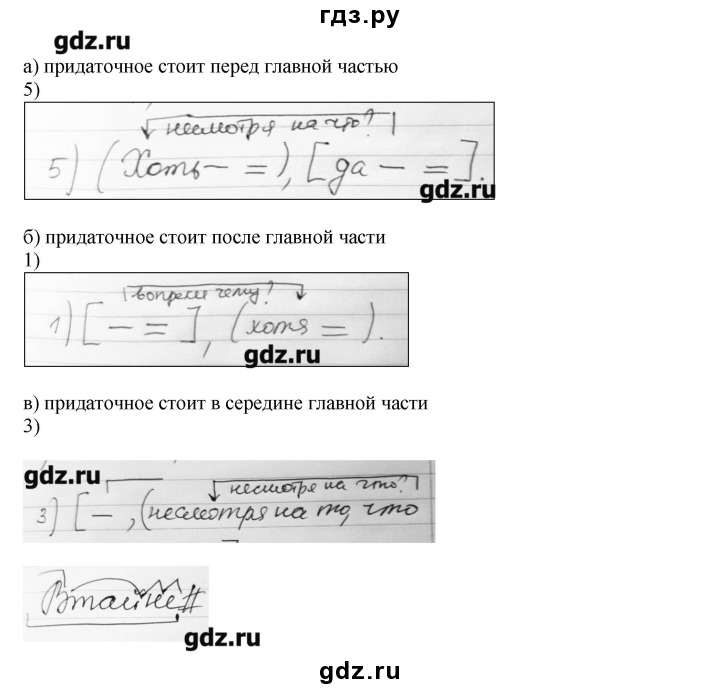 гдз.ру
gdz.ru
а) придаточное стоит перед главной частью
5)
несмотря на что?
5) (Хоть – =), [да – =].
gdz.ru
б) придаточное стоит после главной части
1)
вопреки чему?
1) [ – = ], (хотя = ).
gdz.ru
в) придаточное стоит в середине главной части
3)
gdz.ru
несмотря на что?
3) [ – , (несмотря на то, что
Втайне#
gdz.ru
gdz.ru